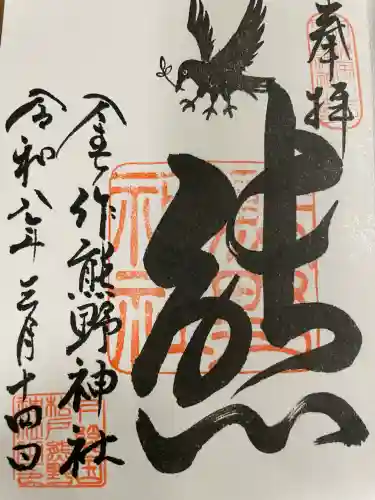 奉拝
熊
金作熊野神社
令和八年三月十四日